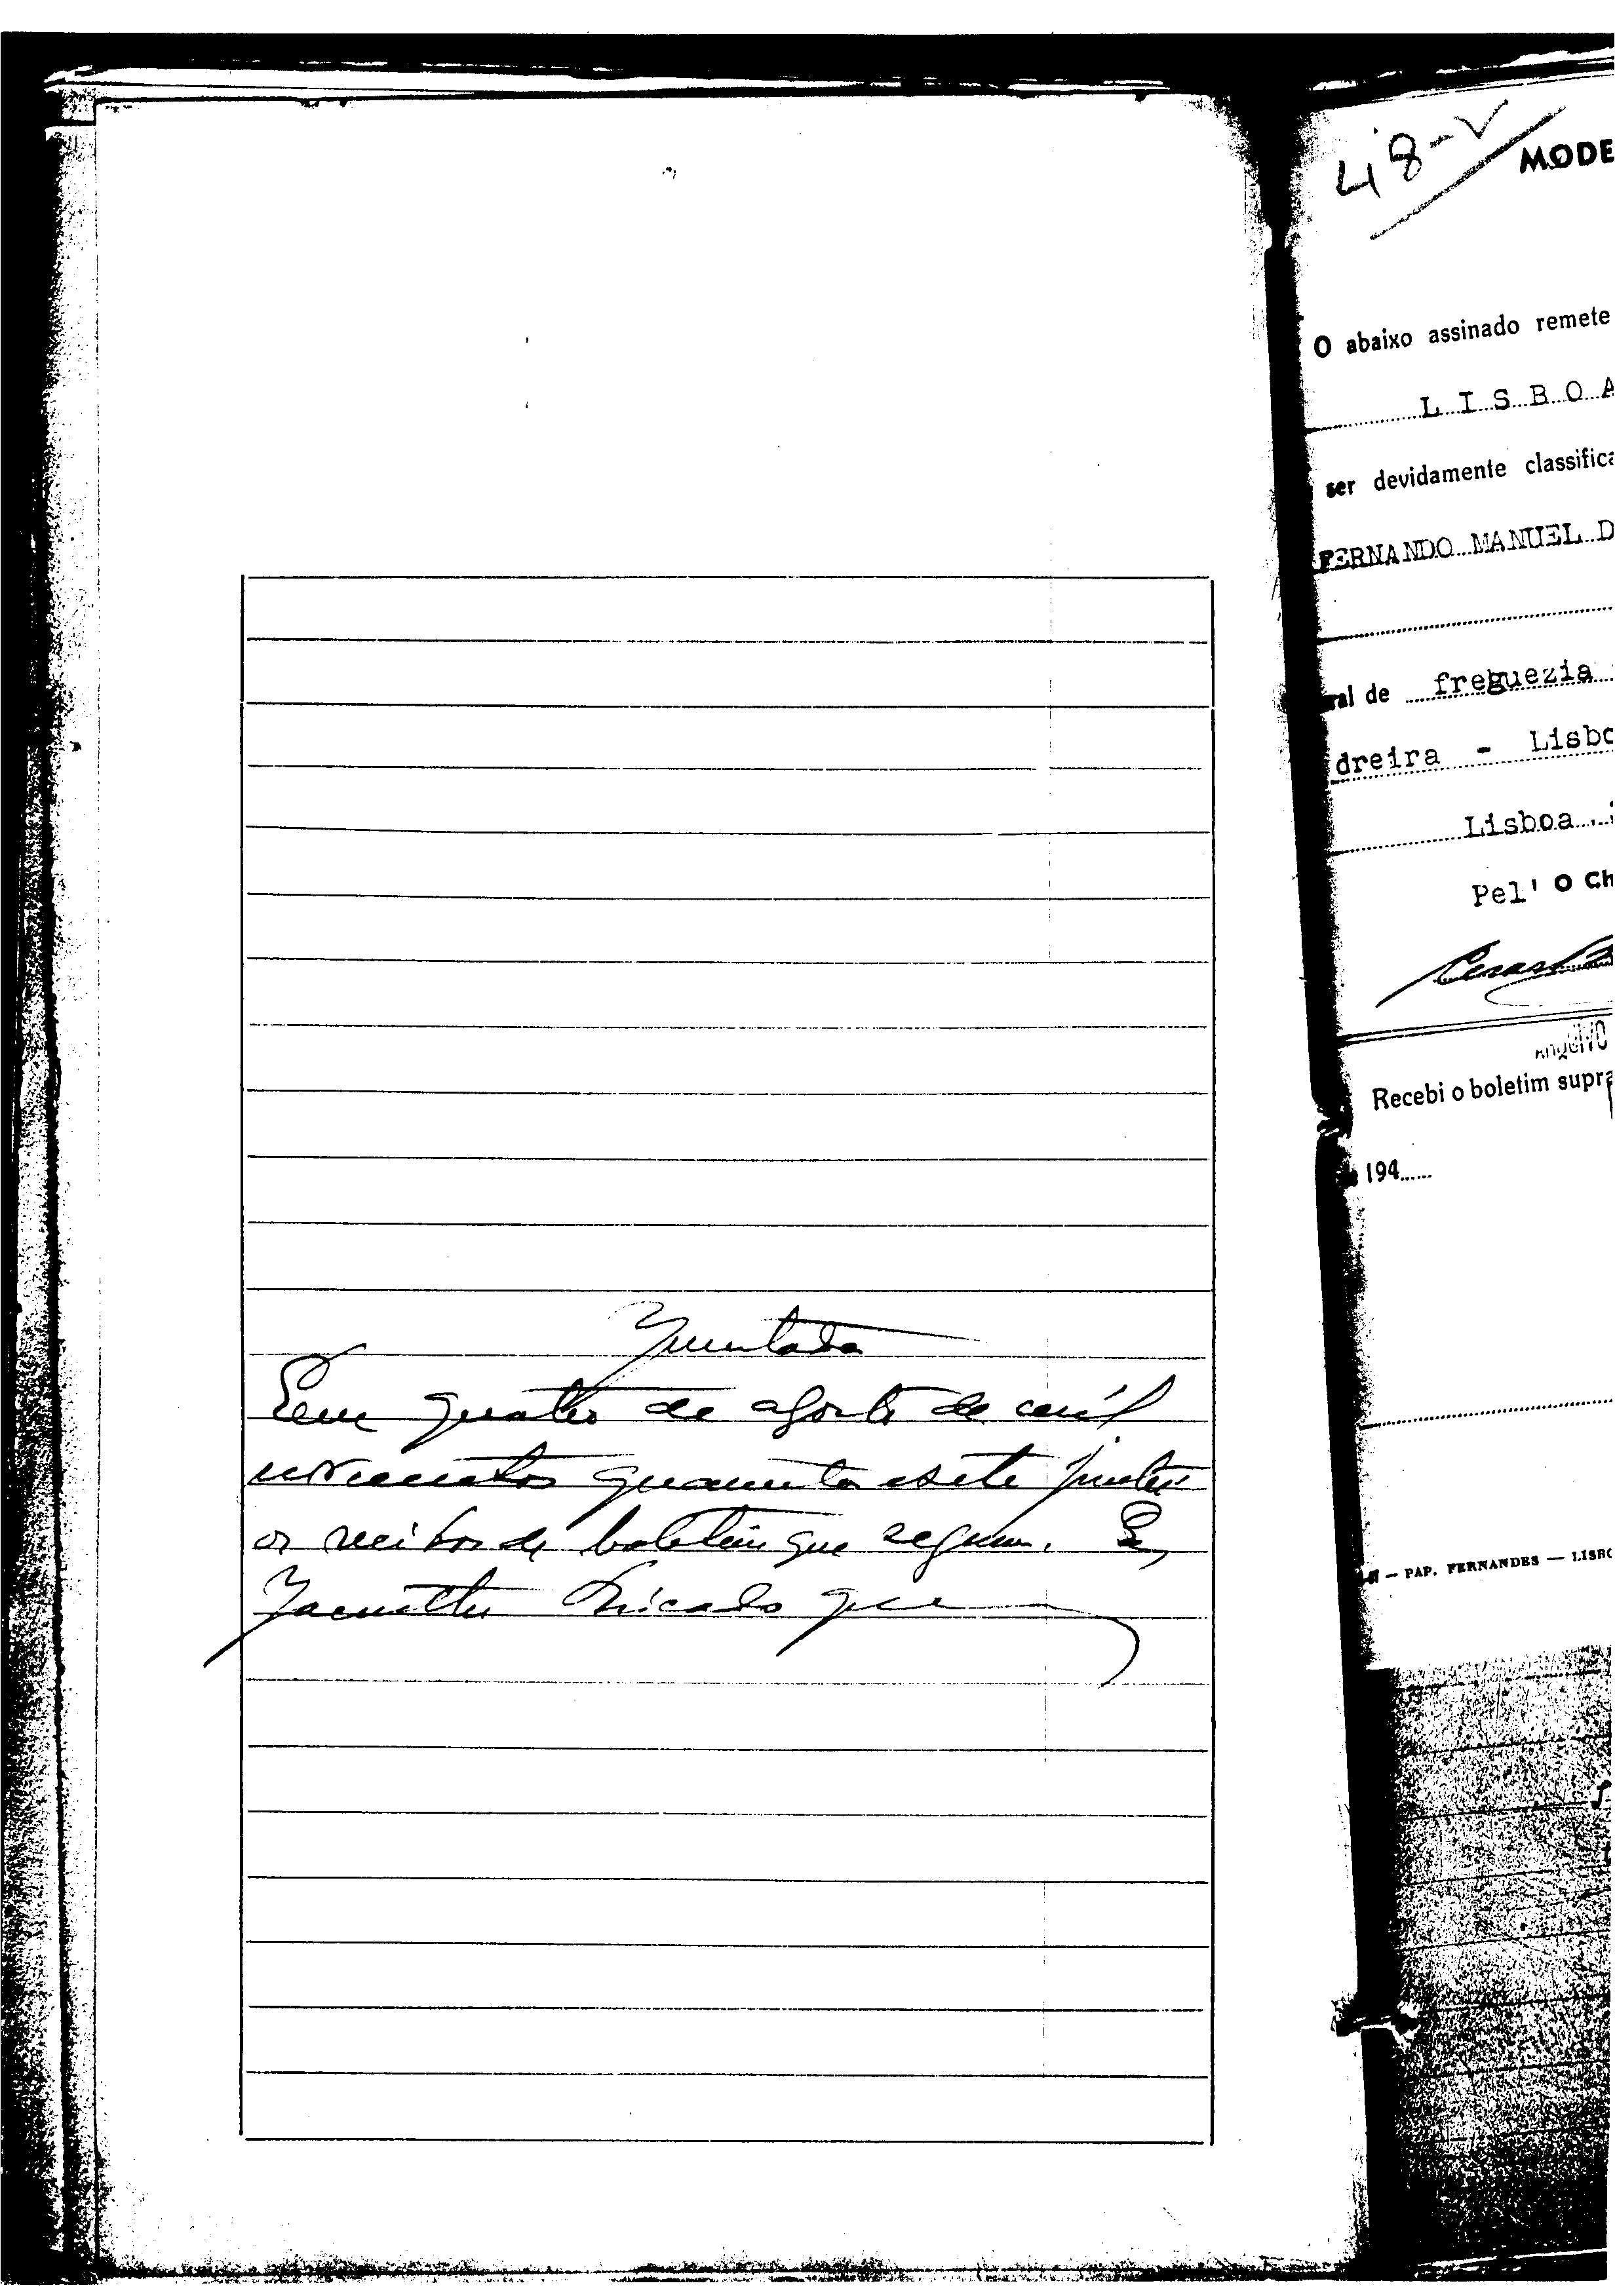 Juntada
Em quatro de agosto de mil
novecentos quarenta e sete juntei
os recibos de boletim que seguem. Eu,
que
48-V
MODE
O abaixo assinado remete
LISBOA
ser devidamente classifica
FERNANDO MANUEL D
ral de freguezia
dreira - Lisbo
Lisboa
Pel' O Ch
ARQUIVO
Recebi o boletim supra
194......
— PAP. FERNANDES — LISBO